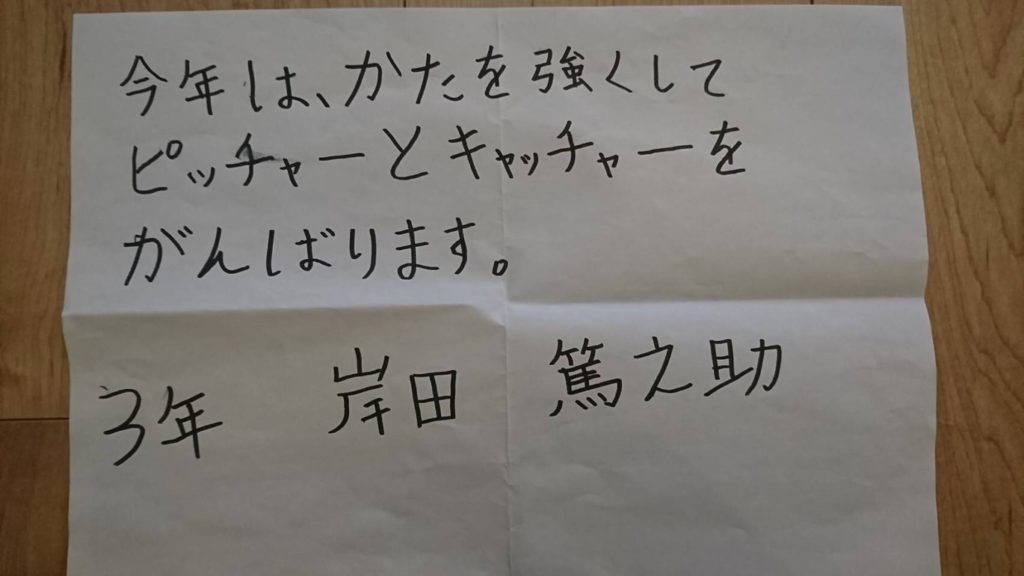 今年は、かたを強くして
ピッチャーとキャッチャーを
がんばります。
3年 岸田 篤之助